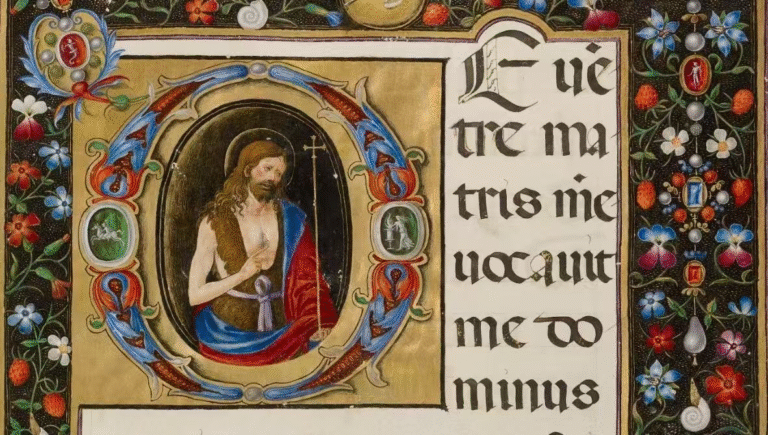 E uē
tre ma
tris mē
uocauit
me do
minus